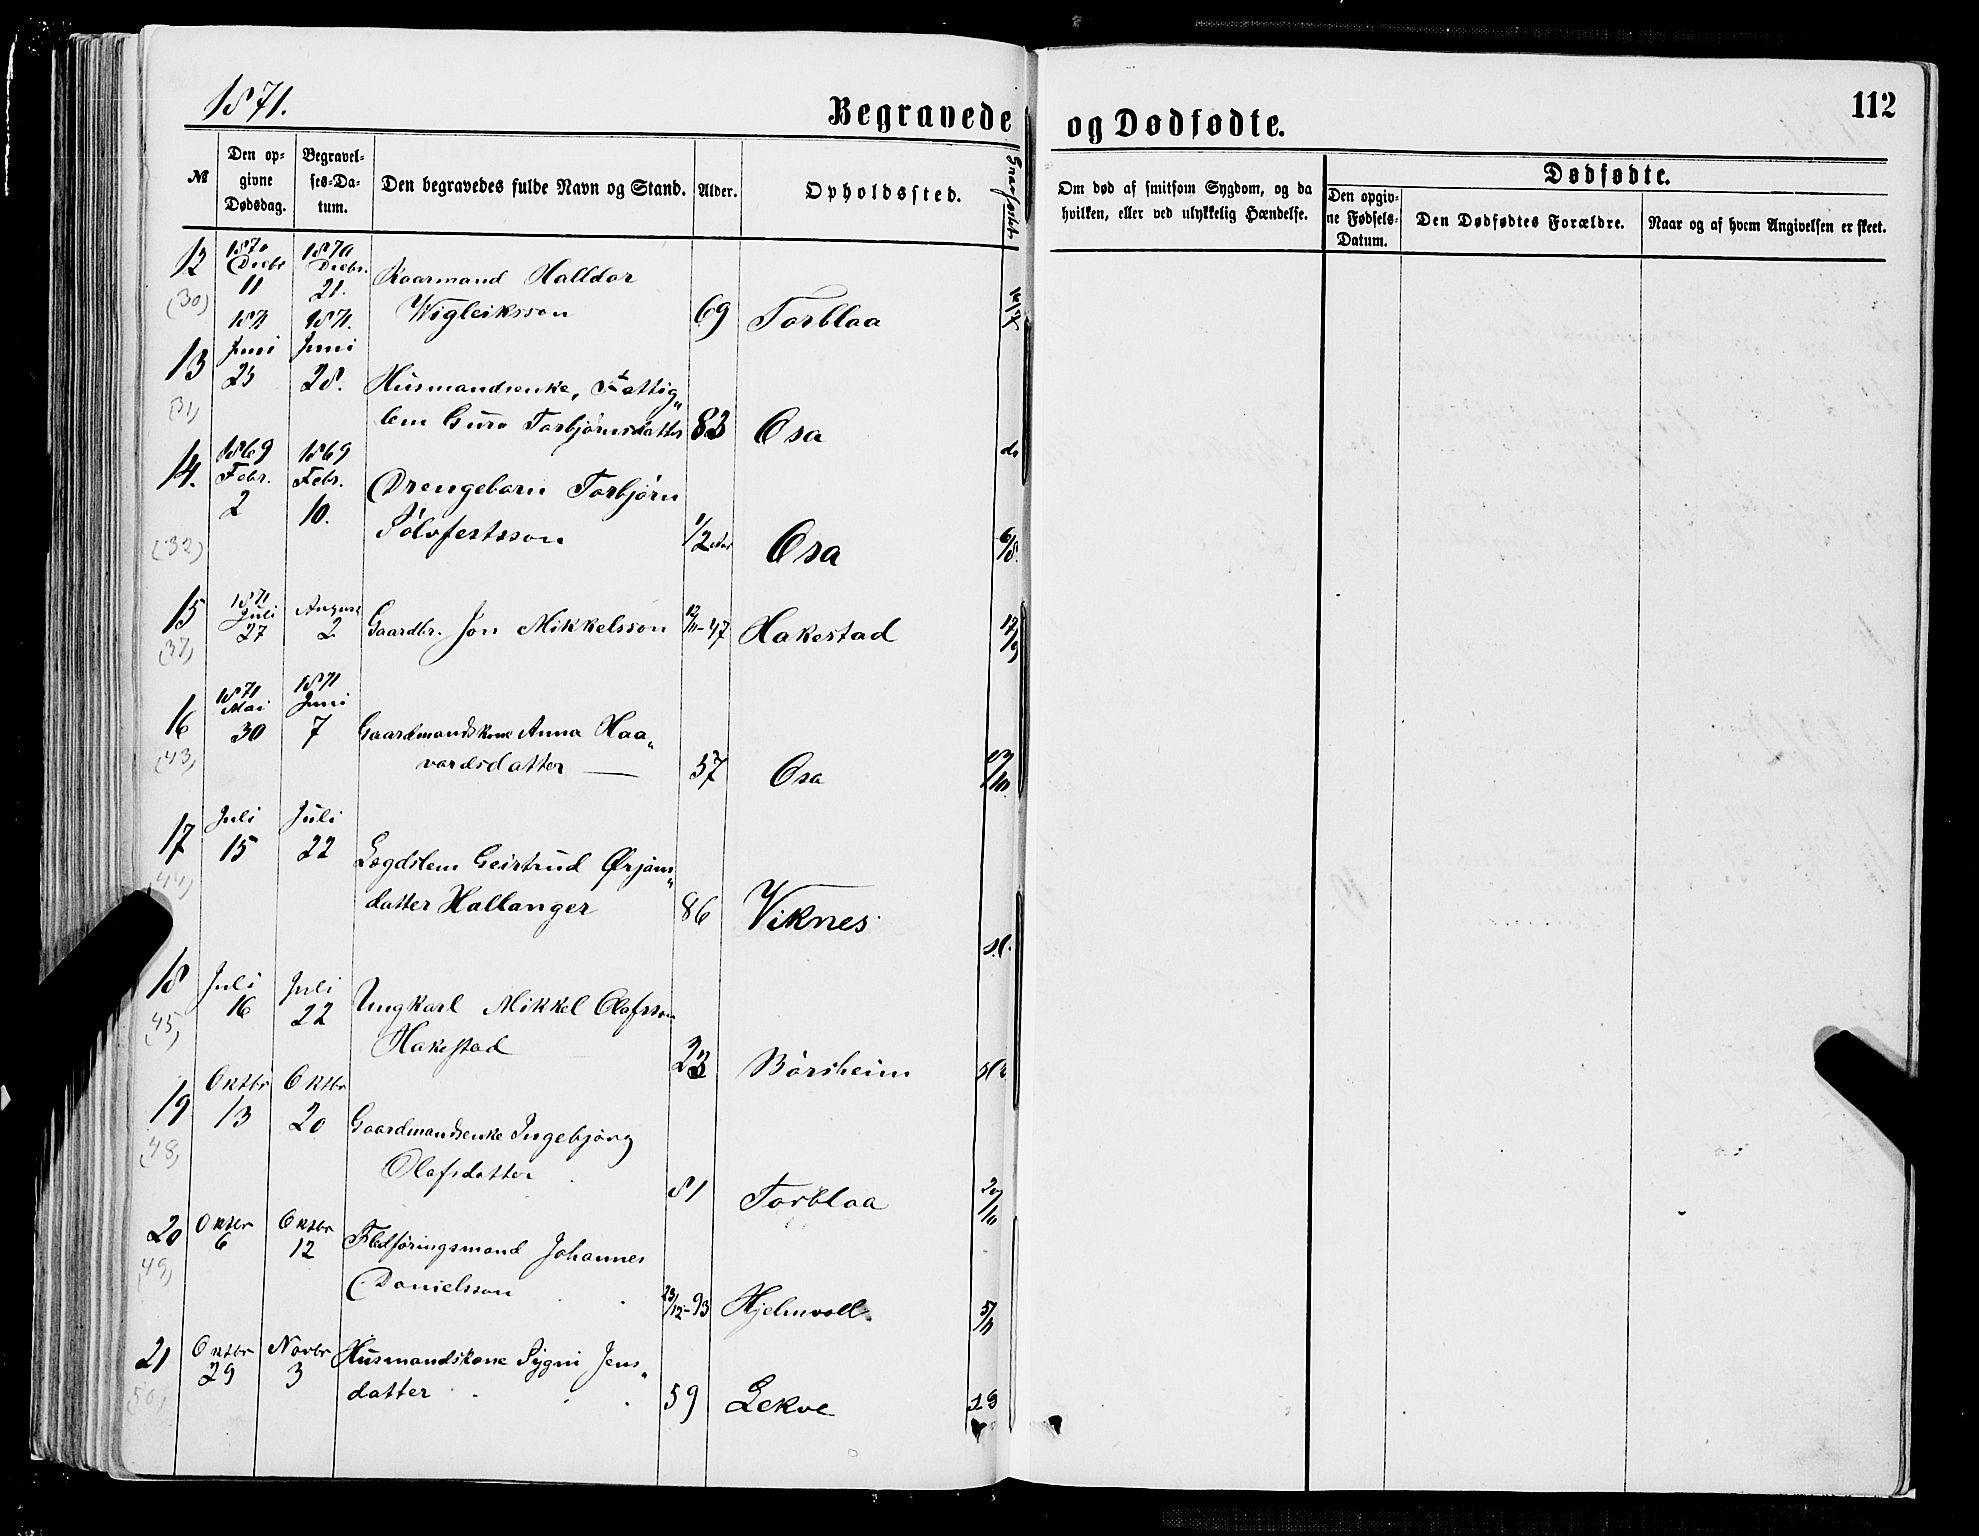 1871.
Begravede og Dødfødte.
112
№
Den opgivne Dødsdag.
Begravelses-Datum.
Den begravedes fulde Navn og Stand.
Alder.
Opholdssted.
Om død af smitsom Sygdom, og da hvilken, eller ved ulykkelig Hændelse.
Dødfødte.
Den opgivne Fødsels-Datum.
Den Dødfødtes Forældre.
Naar og af hvem Angivelsen er skeet.
12 1870 Decbr 11 1870 Decbr. 21. Kaarmand Halldor
(30) Wigleiksson 69 Torblaa
13 1871 Juni 25 1871. Juni 28. Husmandsenke, Fattig„
(31) lem Guro Torbjørnsdatter 83 Osa do
14. 1869 Febr. 2 1869 Febr. 10. Drengebarn Torbjørn
(32) Sølvfestsson 1/2 Aar Osa 6/8.
15 1871 Juli 27 August 2 Gaardbr. Jon Mikkelsson 12/11-47 Hakestad 17/9
(37)
16 1871 Mai 30 1871 Juni 7 Gaardmandskone Anna Haa„
(43) vardsdatter — 57 Osa
17 Juli 15 Juli 22 Lægdslem Geirtrud Ørjans„
(44) datter Hallanger 86 Viknes
18 Juli 16 Juli 22 Ungkarl Mikkel Olafsson
(45) Hakestad 23 Børsheim
19 Oktbr 13 Oktbr 20 Gaardmandsenke Ingebjørg
(48) Olafsdatter 81 Torblaa 20/10
20 Oktbr 6 Oktbr 12 Fledføringsmand Johannes
(49) Danielsson 23/12-93 Hjelmvoll 5/11
21 Oktbr 29 Novbr 3 Husmandskone Sygni Jens„
(50) datter 59 Lekve